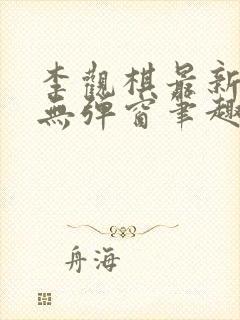 李觀棋最新
無彈窗筆趣
舟海